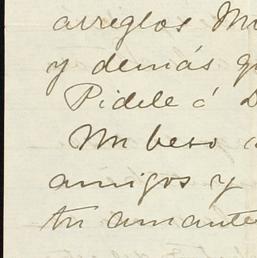 arreglos Mu
y demás q
Pidele á D
Un beso a
amigos y
tu amante